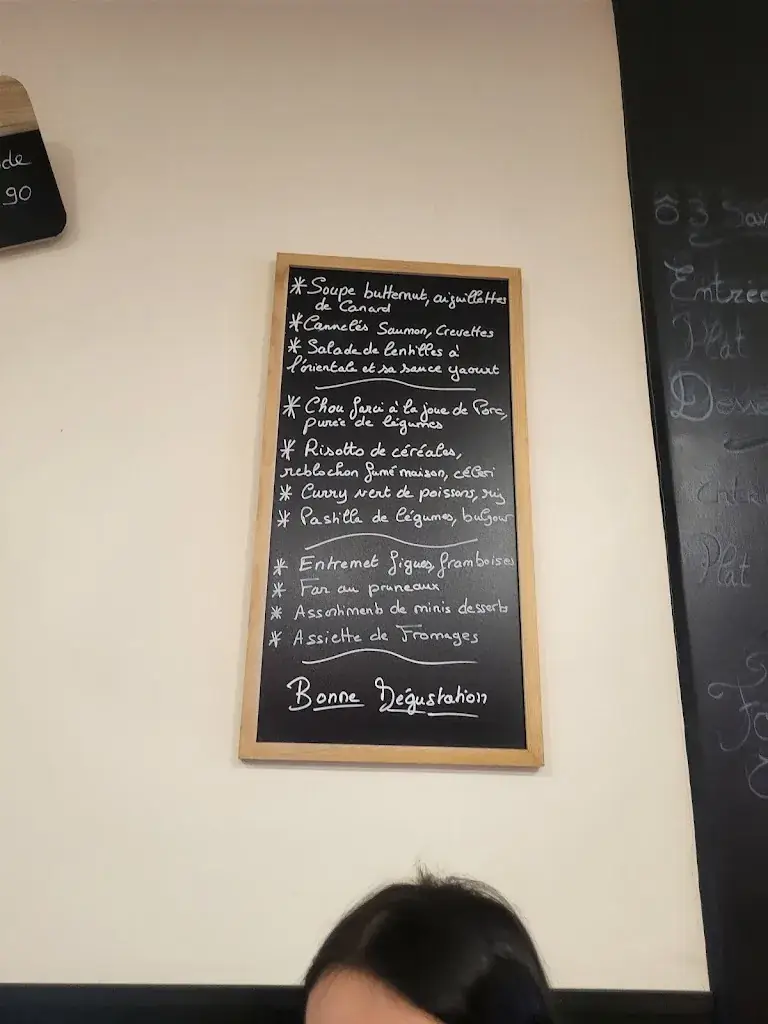 de
90
* Soupe butternut, aiguillettes
de Canard
* Cannelés Saumon, Crevettes
* Salade de lentilles à
l'orientale et sa sauce yaourt
* Chou farci à la joue de Porc,
purée de légumes
* Risotto de céréales,
reblochon fumé maison, céleri
* Curry vert de poissons, riz
* Pastilla de légumes, bulgour
* Entremet figues, framboises
* Far au pruneaux
* Assortiments de minis desserts
* Assiette de Fromages
Bonne Dégustation
Ô 3 Sav
Entrée
Plat
Desse
Entré
Plat